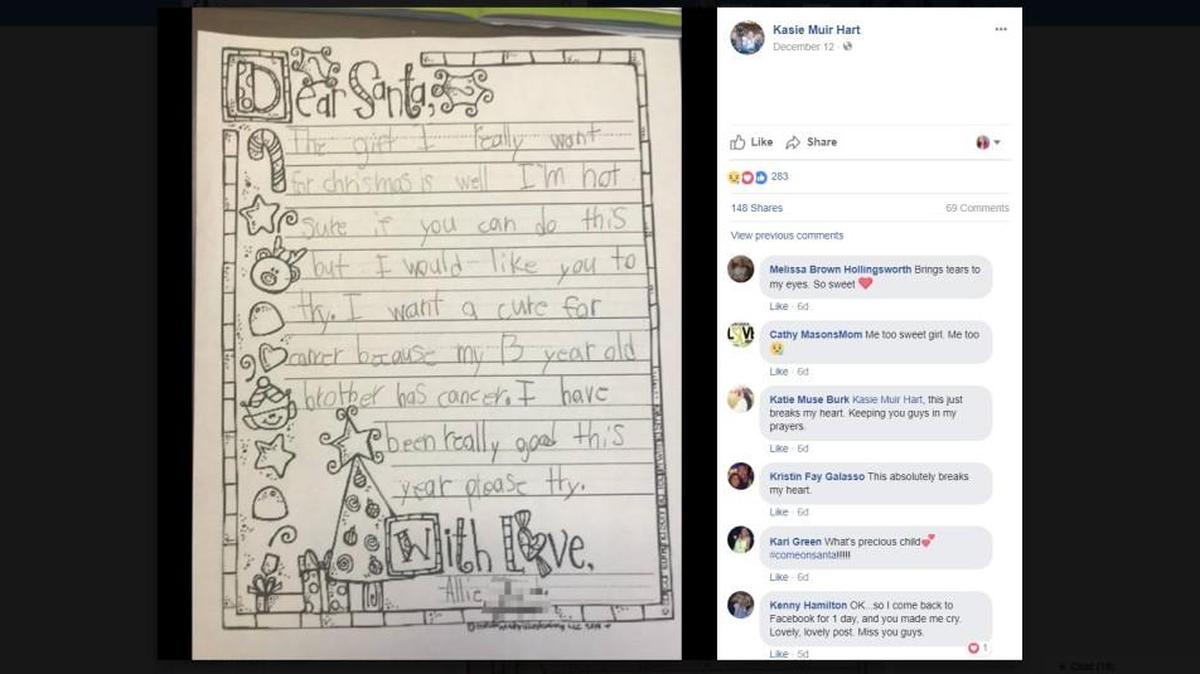 Dear Santa,
The gift I really want
for chrismas is well I'm not
sure if you can do this
but I would like you to
try. I want a cure for
cancer because my 13 year old
brother has cancer. I have
been really good this
year please try.
With Love,
Allie
Kasie Muir Hart
December 12
Like Share
283
148 Shares 69 Comments
View previous comments
Melissa Brown Hollingsworth Brings tears to
my eyes. So sweet
Like · 6d
Cathy MasonsMom Me too sweet girl. Me too
Like · 6d
Katie Muse Burk Kasie Muir Hart, this just
breaks my heart. Keeping you guys in my
prayers.
Like · 6d
Kristin Fay Galasso This absolutely breaks
my heart.
Like · 6d
Kari Green What's precious child
#comeonsanta!!!!!
Like · 6d
Kenny Hamilton OK...so I come back to
Facebook for 1 day, and you made me cry.
Lovely, lovely post. Miss you guys.
1
Like · 5d